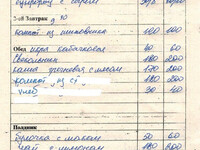 2-ой Завтрак д 10
компот из шиповника 100 100
Обед икра кабачковая 40 60
Свекольник 180 200
каша гречневая с мясом 170 200
компот из 180 200
хлеб 30 40
Полдник
булочка с маком 50 60
чай с лимоном 180 200